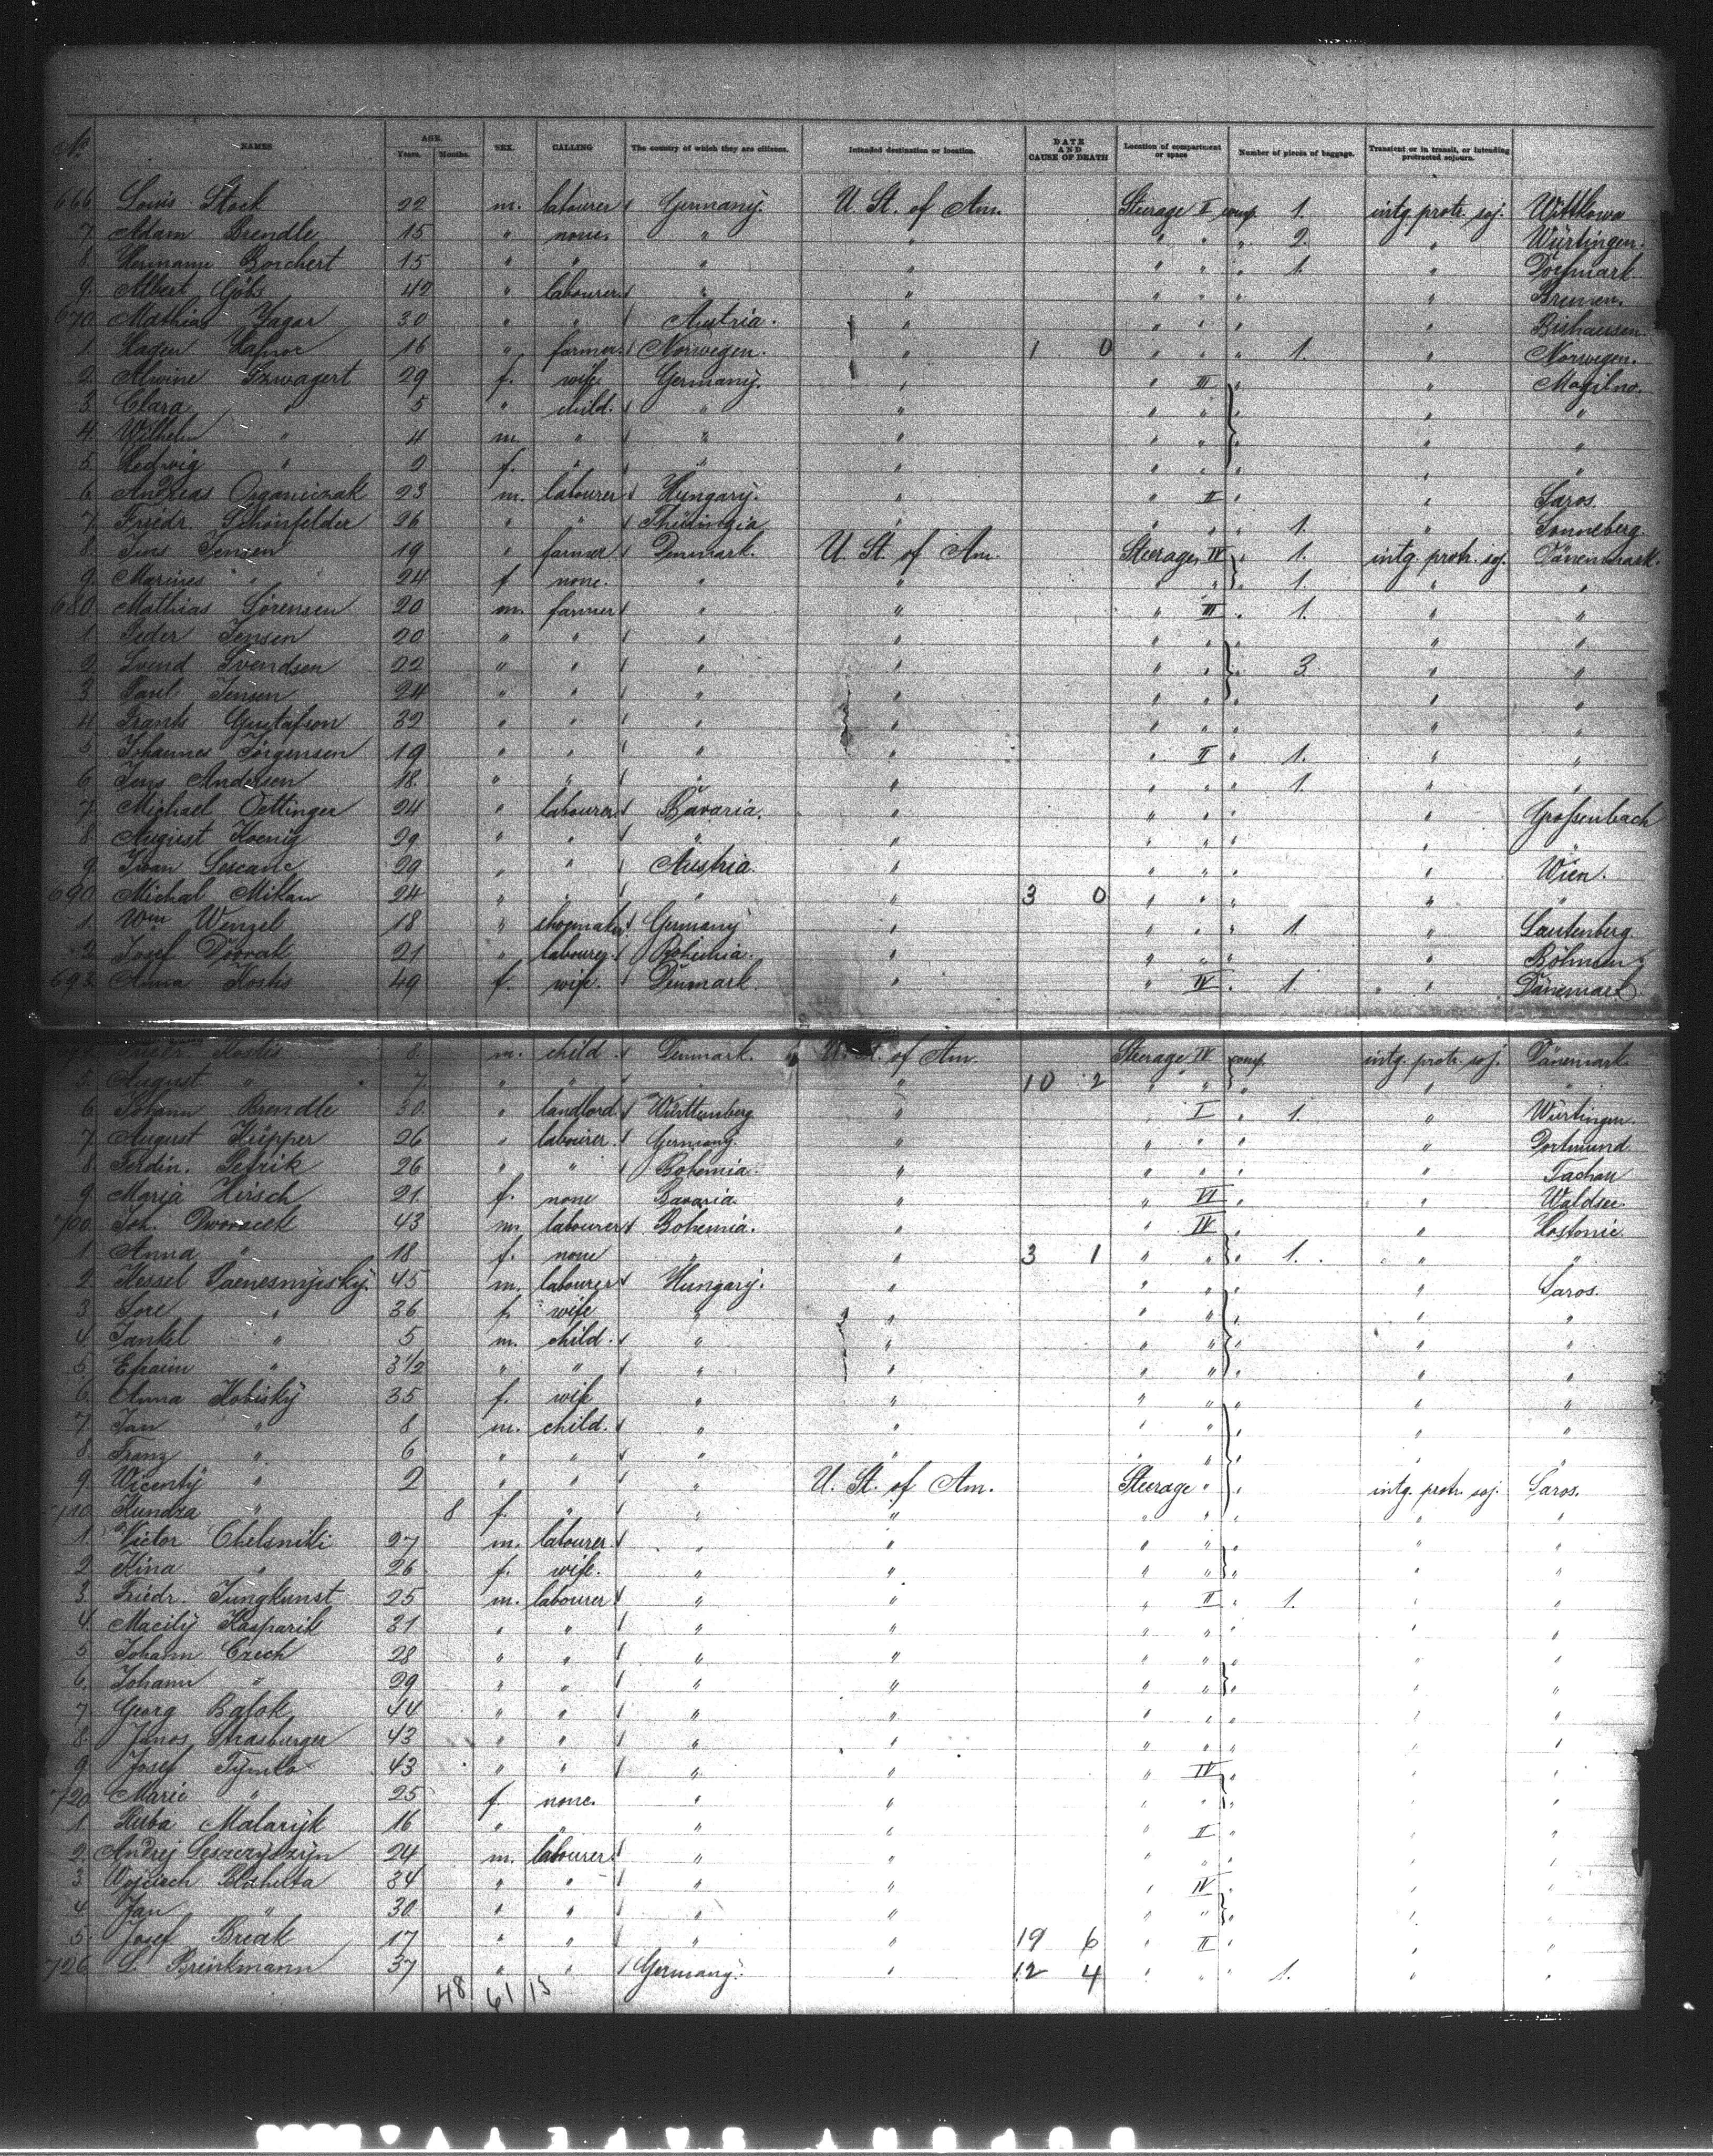 No. NAMES AGE. Years. Months. SEX. CALLING The country of which they are citizens. Intended destination or location. DATE AND CAUSE OF DEATH Location of compartment or space Number of pieces of baggage. Transient or in transit, or intending protracted sojourn.
666 Louis Stock 22 m. labourer Germany. U. St. of Am. Steerage II comp. 1. intg. protr. soj. Wittkowo
7 Adam Brendle 15 " none. " " " " " 2. " Würtingen.
8. Hermann Borchert 15 " " " " " " " 1. "
9. Albert Göbs 42 " labourer " " " " " " Bremen.
670 Mathias Jagar 30 " " Austria. " " " " "
1. Hagen 16 " farmer. Norwegen. " 1 0 " " " 1. " Norwegen.
2. Alwine 29 f. wife Germany. " " III " " Mogilno.
3. Clara " 5 " child. " " " " " " "
4. Wilhelm " 4 m. " " " " " " " "
5. Hedwig " 9 f. " " " " " " " "
6. Andreas Organiczak 23 m. labourer Hungary. " " II " " Saros.
7. Friedr. Schönfelder 26 " " Thüringia " " " " 1. " Sonneberg.
8. Jens Jensen 19 " farmer Denmark. U. St. of Am. Steerage IV " 1. intg. protr. soj. Dänemark.
9. Marines " 24 f. none. " " " " 1. " "
680 Mathias Sörensen 20 m. farmer " " " III " 1. " "
1. Peder Jensen 20 " " " " " " " " "
2 Svend Svendsen 22 " " " " " " " 3. " "
3 Paul Jensen 24 " " " " " " " " "
4 Frank Gustafson 32 " " " " " " " " "
5 Johannes Jörgensen 19 " " " " " II " 1. " "
6 Jens Andersen 18. " " " " " " " 1. " "
7. Michael Oettinger 24 " labourer Bavaria. " " " " " Großenbach
8. August Koenig 29 " " " " " " " " "
9. Ivan Lescanc 29 " " Austria. " " " " " Wien.
690 Michal Mikan 24 " " " " 3 0 " " " " "
1. Wm Wenzel 18 " shoemaker Germany " " " " 1 " Lautenberg
2 Josef Dvorak 21 " labourer Bohemia. " " " " " Böhmen.
693 Anna Kostis 49 f. wife. Denmark. " " IV " 1. " Dänemark
Kostis 8. m. child Denmark. U. St. of Am. Steerage IV comp. intg. protr. soj. Dänemark
5. August " 7. " " " " 10 2 " " " " "
6. Johann Brendle 30. " landlord. Württemberg " I " 1. " Würtingen.
7. August Küpper 26 " labourer. Germany. " " " " " Dortmund
8. Ferdin. Petrik 26 " " Bohemia. " " " " " Tachau
9. Maria Hirsch 21. f. none Bavaria " " VI " " Waldsee.
700. Joh. Dworacek 43 m. labourer Bohemia. " " IV " " Hostonic.
1. Anna " 18 f. none " " 3 1 " " " 1. " "
2. Kessel 45 m. labourer Hungary. " " " " " Saros.
3. Sore " 36 f. wife " " " " " " "
4. Jankel " 5 m. child. " " " " " " "
5. Efraim " 3 1/2 " " " " " " " " "
6. Anna Kobisky 35 f. wife " " " " " " "
7. Jan " 8 m. child. " " " " " " "
8. Franz " 6 " " " " " " " " "
9. Wicenty " 2 " " " U. St. of Am. Steerage " " intg. protr. soj. Saros.
710 Kundza " 8 f. " " " " " " "
1. Victor Chelsniki 27 m. labourer " " " " " " "
2 Kina " 26 f. wife. " " " " " " "
3. Friedr. Jungkunst 25 m. labourer " " " II " 1. " "
4. Macity Kasparik 31 " " " " " " " "
5 Johann Czech 28 " " " " " " " " "
6. Johann " 29 " " " " " " " " "
7. Georg Bafok 44 " " " " " " " " "
8. Janos Strasburger 43 " " " " " " " " "
9. Josef Tymko 43 " " " " " IV " " "
720 Marie " 25 f. none. " " " " " " "
1. Kuba Malaryk 16 " " " " " II " " "
2. Andrej Leszczyszyn 24 m. labourer " " " " " " "
3 Wojciech 34 " " " " " IV " " "
4 Jan " 30 " " " " " " " " "
5. Josef Break 17 " " " " 19 6 " II " " "
726 L. Brinkmann 37 " " Germany. " 12 4 " " " 1. " "
48 61 15